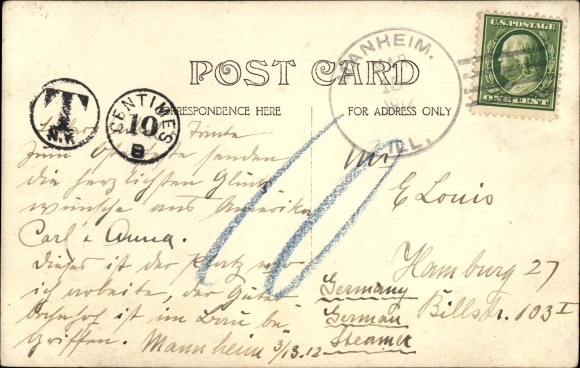 POST CARD
CORRESPONDENCE HERE
FOR ADDRESS ONLY
U.S. POSTAGE
ONE CENT
MANHEIM.
ILL.
T
N.Y.
CENTIMES
10
B
10
Tinte
zum Osterfeste senden
die herzlichsten Glück
wünsche aus Amerika
Carl & Anna.
Dieses ist der Platz wo
ich arbeite, der Güter
bahnhof ist im Bau be
griffen. Mannheim 3/13.12
E Louis
Hamburg 27
Billstr. 103 I
Germany
German
Steamer